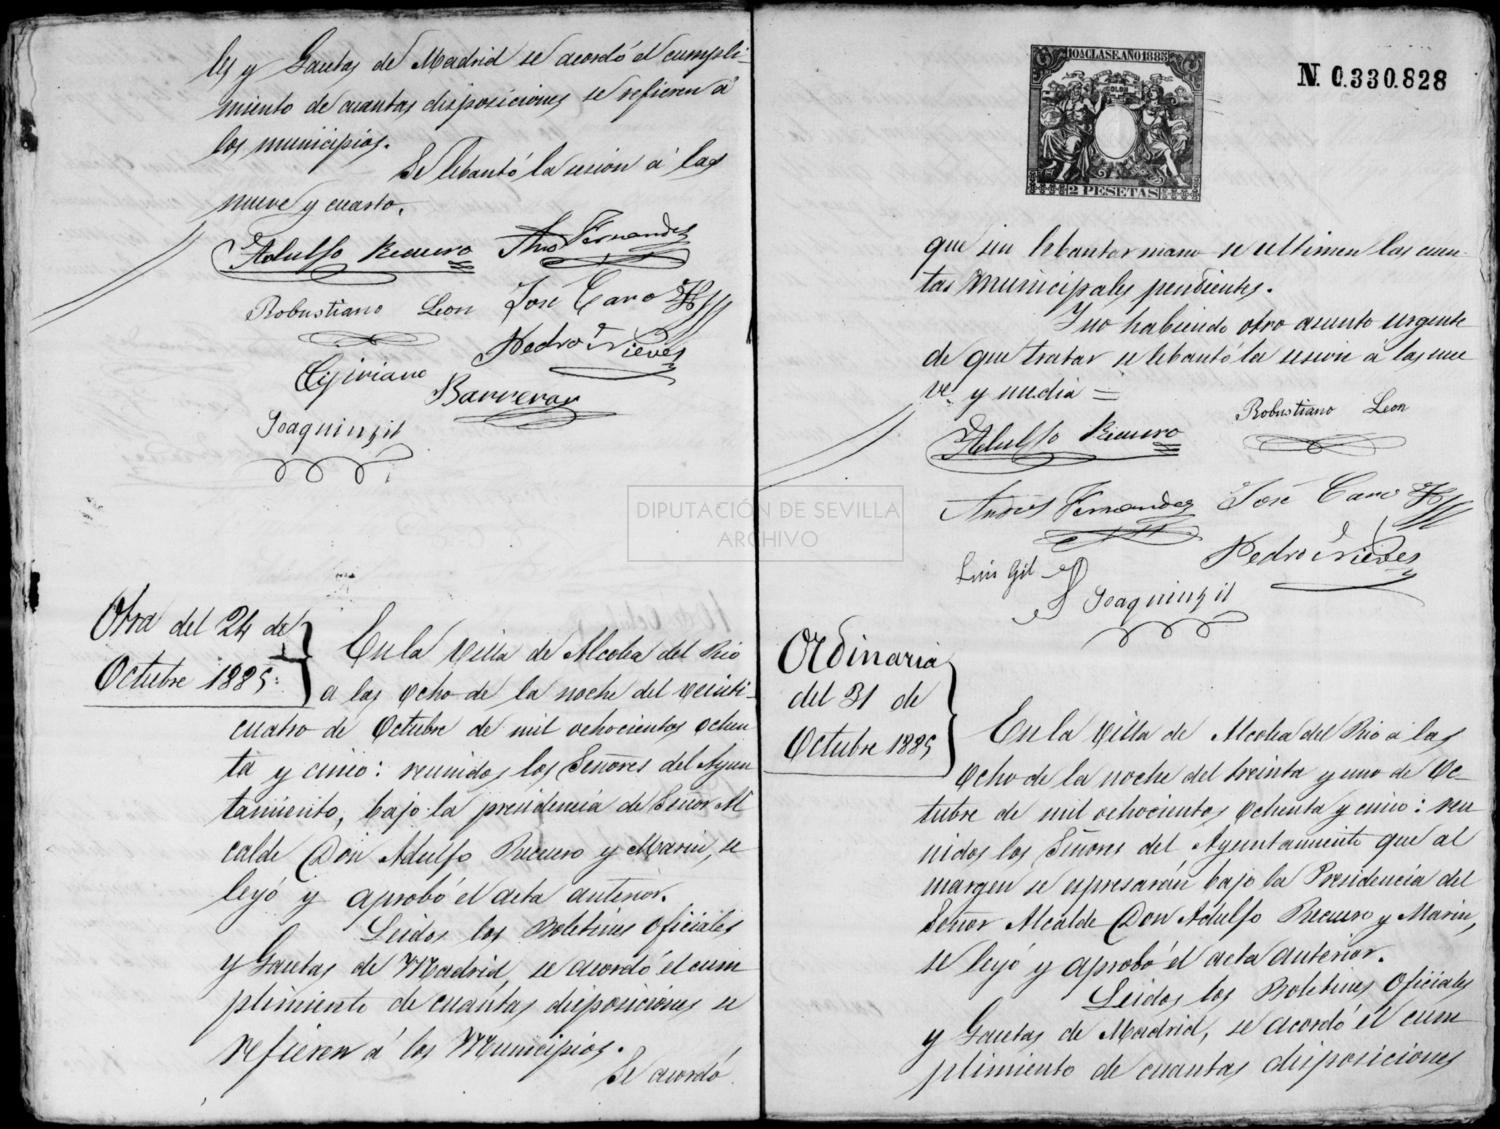 les y Gacetas de Madrid se acordó el cumpli-
miento de cuantas disposiciones se refieren á
los municipios.
Se lebantó la sesion á las
nueve y cuarto.
Adulfo Recuero
Fernandez
Robustiano Leon
José Caro
Pedro Nieves
Cipriano
Barreras
Joaquin Gil
Otra del 24 de
Octubre 1885:
En la Villa de Alcolea del Rio
a las Ocho de la noche del veinti-
cuatro de Octubre de mil ochocientos ochen
ta y cinco: reunidos los Señores del Ayun
tamiento, bajo la presidencia de Señor Al
calde Don Adulfo Recuero y Marin, se
leyó y aprobó el acta anterior.
Leidos los Boletines Oficiales
y Gacetas de Madrid, se acordó el cum
plimiento de cuantas disposiciones se
refieren á los Municipios.
Se acordó
10A CLASE. AÑO 1885
2 PESETAS
N. 0.330.828
que sin lebantar mano se ultimen las cuen-
tas Municipales pendientes.
Y no habiendo otro asunto urgente
de que tratar se lebantó la sesion á las nue
ve y media =
Robustiano Leon
Adulfo Recuero
Andres Fernandez
José Caro
Pedro Nieves
Luis Gil
Joaquin Gil
Ordinaria
del 31 de
Octubre 1885
En la Villa de Alcolea del Rio a las
Ocho de la noche del treinta y uno de Oc-
tubre de mil ochocientos ochenta y cinco: reu
nidos los Señores del Ayuntamiento que al
margen se espresarán bajo la Presidencia del
Señor Alcalde Don Adulfo Recuero y Marin,
se leyó y aprobó el acta anterior.
Leidos los Boletines Oficiales
y Gacetas de Madrid, se acordó el cum
plimiento de cuantas disposiciones
DIPUTACIÓN DE SEVILLA
ARCHIVO